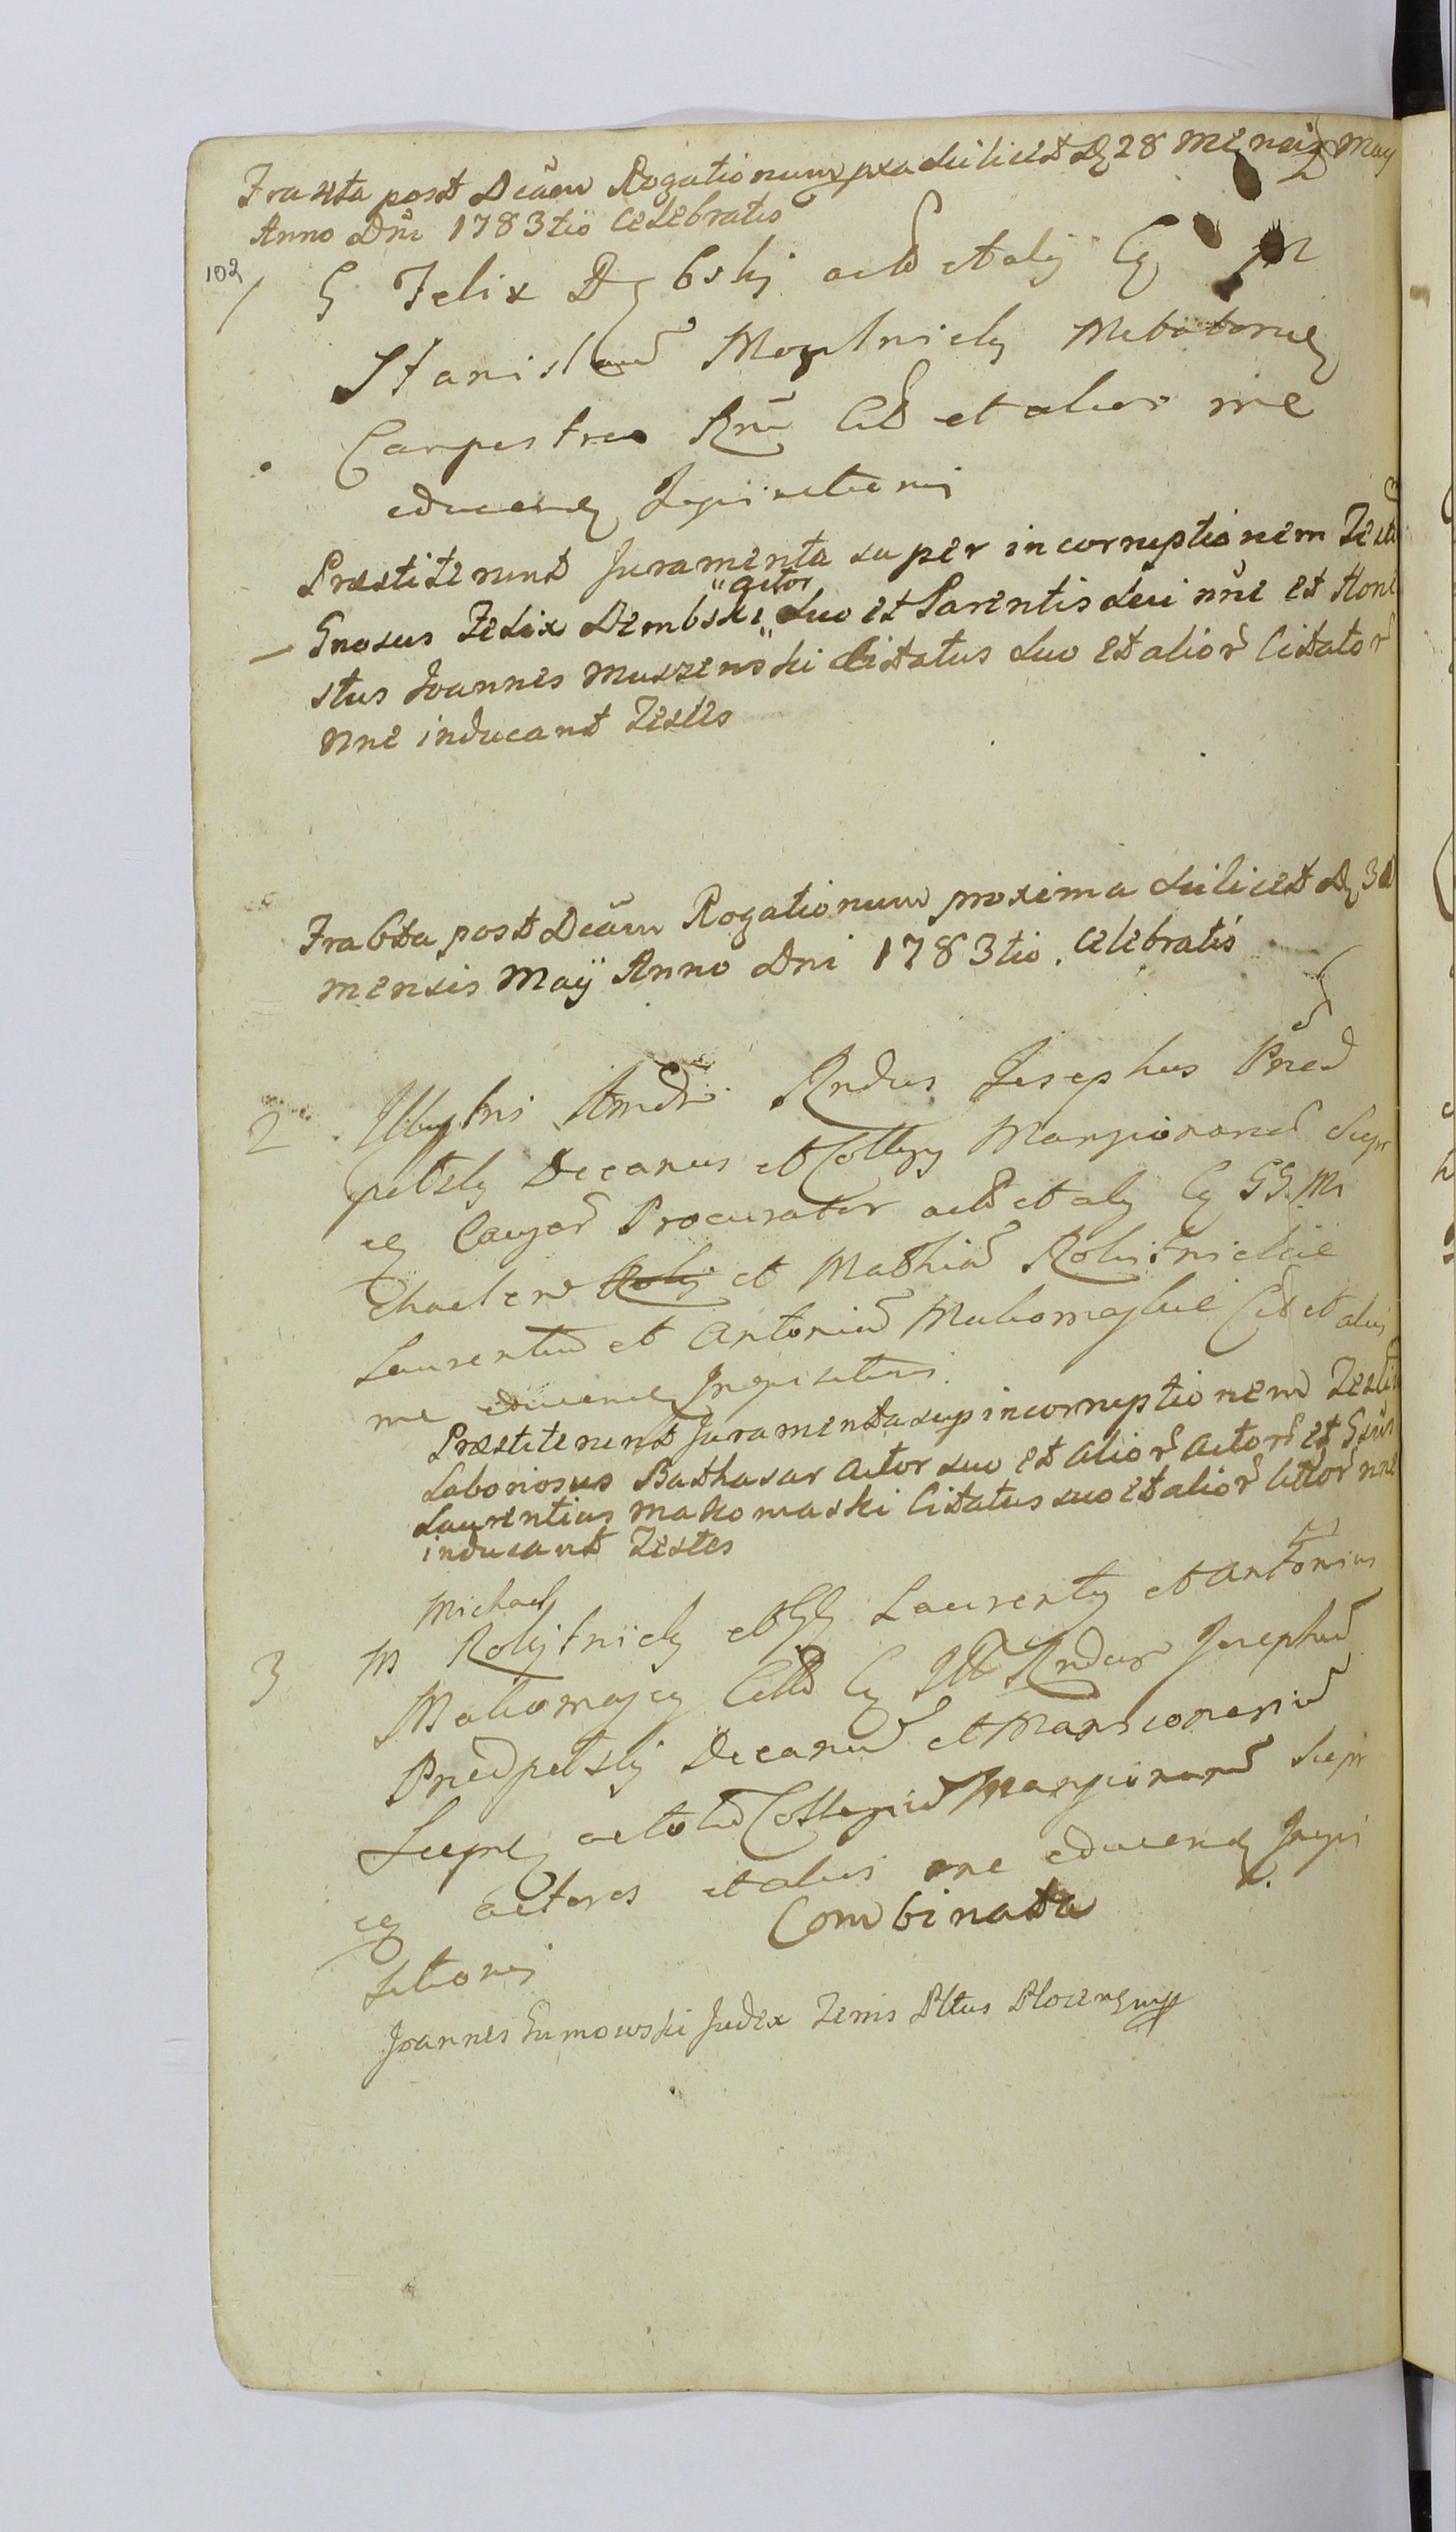 Fra 4ta post Dcam Rogationum pxa scilicet D 28 mensis May
Anno Dni 1783tio Celebratis
102
1 G Felix Dębskj act et alij Cq M
Stanislaum Metatorem
Campestrem Rni Cit et alior me
educend Inquisitionis
Præstiterunt Juramenta super incorruptionem Testi
Gnosus Felix Dembski "actor" suo et Parentis sui nne et Hone
stus Joannes Muszenski Citatus suo et alior Citator
nne inducant Testes
Fra 6ta post Dcam Rogationum proxima scilicet D 30
mensis Maÿ Anno Dni 1783tio. Celebratis
2 Illustri Amdi Rndus Josephus Pned
petsky Decanus et Collegy Mansionar Siepr
cy Causar Procurator act et alij Cq GG. Mi
chaelem et Mathiam Rokitnickie
Laurentium et Antonium Makomaskie Cit et alios
me educend Inquisitionis.
Præstiterunt Juramenta sup incorruptionem Testiu
Laboriosus Balthasar Actor suo et alior Actor et Gsus
Laurentius Makomaski Citatus suo et alior Cittor nne
inducant Testes
Michael
3 M Rokitnicky et GG Laurenty et Antonius
Makomascy Citt Cq Ill Rndum Josephum
Pnedpelskj Decanum et Mansionarium
Siepr actotum Collegium Mansionarum Siepr
cy actores et alios me educend Inqui
sitionis
Combinata
Joannes Gumowski Judex Tenis Pltus Plocens mpp